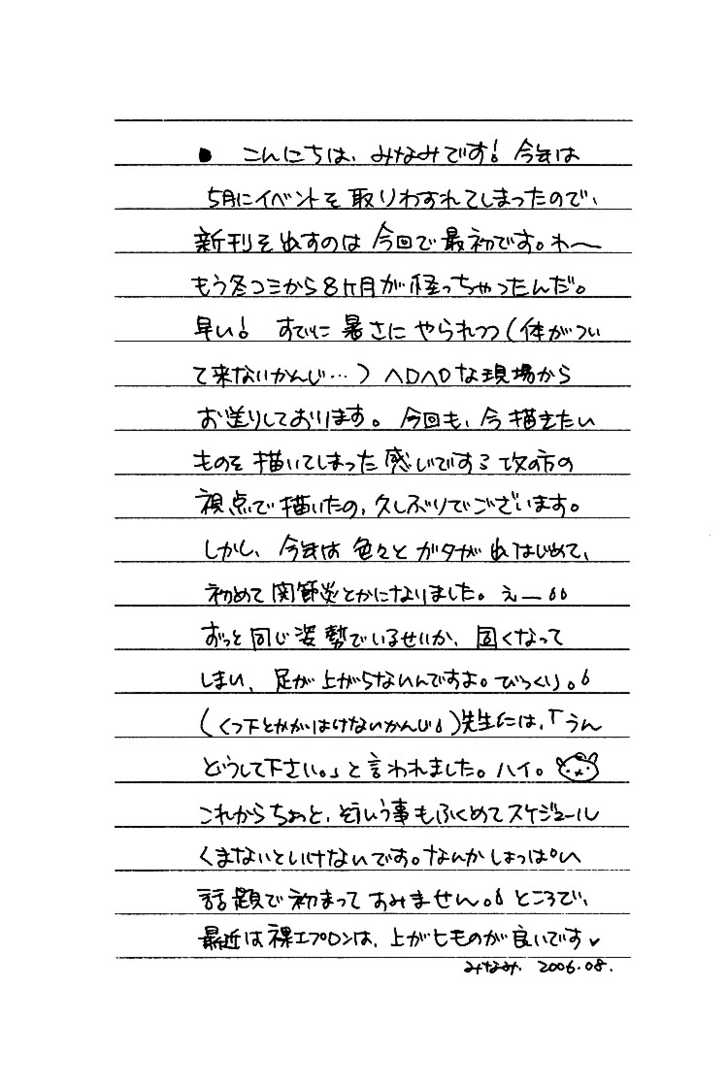 ● こんにちは、みなみです！今年は
5月にイベントを取りわすれてしまったので、
新刊を出すのは今回で最初です。わ〜
もう冬コミから8ヶ月が経っちゃったんだ。
早い！ すでに暑さにやられつつ（体がつい
て来ないかんじ…）ヘロヘロな現場から
お送りしております。今回も、今描きたい
ものを描いてしまった感じです 攻の方の
視点で描いたの、久しぶりでございます。
しかし、今年は色々とガタが出はじめて、
初めて関節炎とかになりました。え―
ずっと同じ姿勢でいるせいか、固くなって
しまい、足が上がらないんですよ。びっくり。
（くつ下とかがはけないかんじ）先生には、「うん
どうして下さい。」と言われました。ハイ。
これからちょっと、そういう事もふくめてスケジュール
くまないといけないです。なんかしょっぱい
話題で初まってすみません。ところで、
最近は裸エプロンは、上が七ものが良いです♥
みなみ. 2006.08.